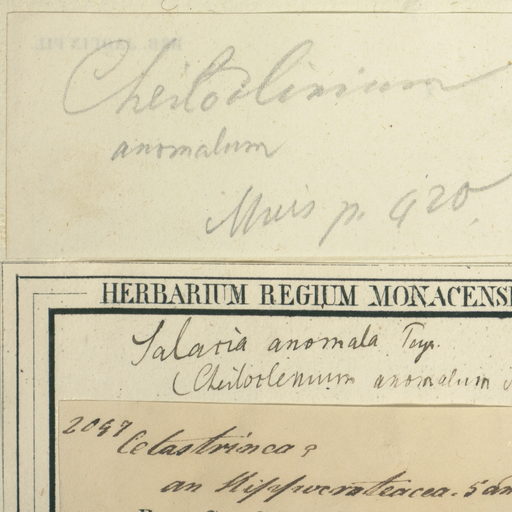 Cheiloclinium
anomalum
Miers p. 420.
HERBARIUM REGIUM MONACENS
Salacia anomala
Cheiloclenium anomalum
2047 Celastrinea?
an Hippocrateacea.